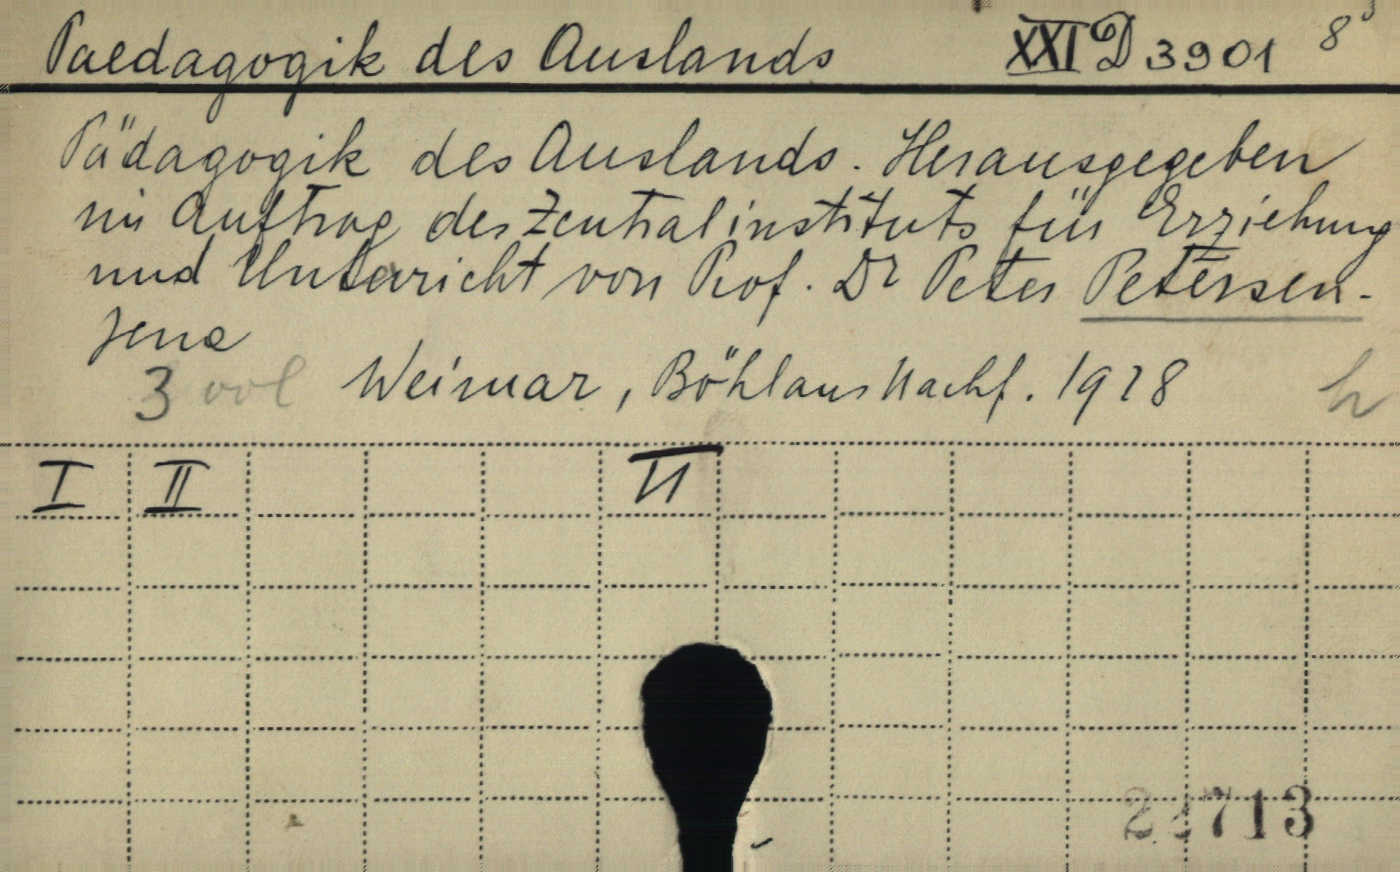 Paedagogik des Auslands XXI D 3901 8°
Pädagogik des Auslands. Herausgegeben
im Auftrag des Zentralinstituts für Erziehung
und Unterricht von Prof. Dr Peter Petersen-
Jena
3 vol Weimar, Böhlaus Nachf. 1928 h
I II VI